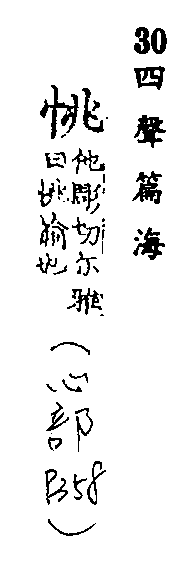 30四聲篇海
恌
他彫切尔雅
曰恌愉也
(心部
P358)